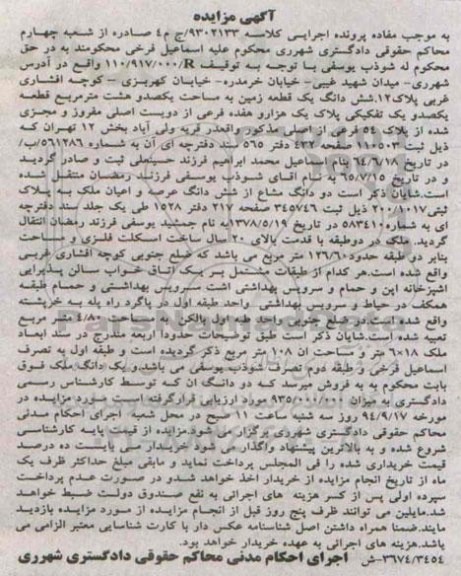 آگهی مزایده
به موجب مفاده پرونده اجرایی کلاسه ۹۳۰۲۱۳۳/ج م۴ صادره از شعبه چهارم
محاکم حقوقی دادگستری شهرری محکوم علیه اسماعیل فرخی محکومند به در حق
محکوم له شوذب یوسفی با توجه به توقیف ۱۱۰/۹۱۷/۰۰۰/R واقع در آدرس
شهرری- میدان شهید غیبی- خیابان خرمدره- خیابان کهریزی – کوچه افشاری
غربی پلاک۱۲.شش دانگ یک قطعه زمین به مساحت یکصدو هشت مترمربع قطعه
یکصدو یک تفکیکی پلاک یک هزارو هفده فرعی از دویست اصلی مفروز و مجزی
شده از پلاک ۵۴ فرعی از اصلی مذکور واقعدر قریه ولی آباد بخش ۱۲ تهران که
ذیل ثبت ۱۱۰۵۰۳ صفحه ۴۳۳ دفتر ۵۶۵ سند دفترچه ای آن به شماره ۵۶۱۲۸۶/ب/
در تاریخ ۶۴/۶/۱۸ بنام اسماعیل محمد ابراهیم فرزند حسینعلی ثبت و صادر گردید
و در تاریخ ۶۵/۷/۱۵ به نام آقای شوذب یوسفی فرزند رمضان منتقل شده
است.شایان ذکر است دو دانگ مشاع از شش دانگ عرصه و اعیان ملک به پلاک
ثبتی۲۰۰/۱۰۱۷ ذیل ثبت ۳۴۵۷۴۶ صفحه ۲۱۷ دفتر ۱۵۲۸ طی یک جلد سند دفترچه
ای به شماره۵۸۳۴۱۰ در تاریخ ۱۳۷۸/۵/۱۹به نام جمشید یوسفی فرزند رمضان انتقال
گردید. ملک در دوطبقه با قدمت بالای ۲۰ سال ساخت اسکلت فلزی و مساحت
بنابر دو طبقه حدود۱۲۶/۶۰ متر مربع می باشد که ضلع جنوبی کوچه افشاری غربی
واقع شده است.هر کدام از طبقات مشتمل بر یک اتاق خواب سالن پذیرایی
اشپزخانه اپن و حمام و سرویس بهداشتی اشت .سرویس بهداشتی و حمام طبقه
همکف در حیاط و سرویس بهداشتی واحد طبقه اول در پاگرد راه پله به خرپشته
واقع شده است.در ضلع جنوبی واحد طبقه اول بالکن به مساحت ۴/۸۰ متر مربع
تعبیه شده است.شایان ذکر است طبق توضیحات حدودا اربعه مندرج در سند ابعاد
ملک ۱۸×۶ متر و مساحت ان ۱۰۸ متر مربع ذکر گردیده است و طبقه اول به تصرف
اسماعیل فرخی و طبقه دوم تصرف شوذب یوسفی می باشد.و یک دانگ ملک فوق
بابت محکوم به به فروش میرسد که دو دانگ ان که توسط کارشناس رسمی
دادگستری به میزان مورد ارزیابی قرارگرفته است .مورد مزایده در
مورخه ۹۴/۹/۱۷ روز سه شنبه ساعت ۱۱ صبح در محل شعبه اجرای احکام مدنی
محاکم حقوقی دادگستری شهرری برگزار می شود.مزایده از قیمت پایه کارشناسی
شروع شده و به بالاترین پیشنهاد واگذار می شود.خریدار می بایست ده درصد
قیمت خریداری شده را فی المجلس پرداخت نماید و مابقی مبلغ حداکثر ظرف یک
ماه از تاریخ انجام مزایده از خریدار اخذ خواهد شد.و در صورت عدم پرداخت
سپرده اولی پس از کسر هزینه های اجرائی به نفع صندوق دولت ضبط خواهد
شد.مایلین می توانند ظرف پنج روز قبل از انجام مزایده از مورد مزایده بازدید
مایند.ضمنا همراه داشتن اصل شناسنامه عکس دار یا کارت شناسایی معتبر الزامی می
باشد.هزینه های اجرائی به عهده خریدار خواهد بود.
۳۶۷۴/۳۴۵۴-ش اجرای احکام مدنی محاکم حقوقی دادگستری شهرری